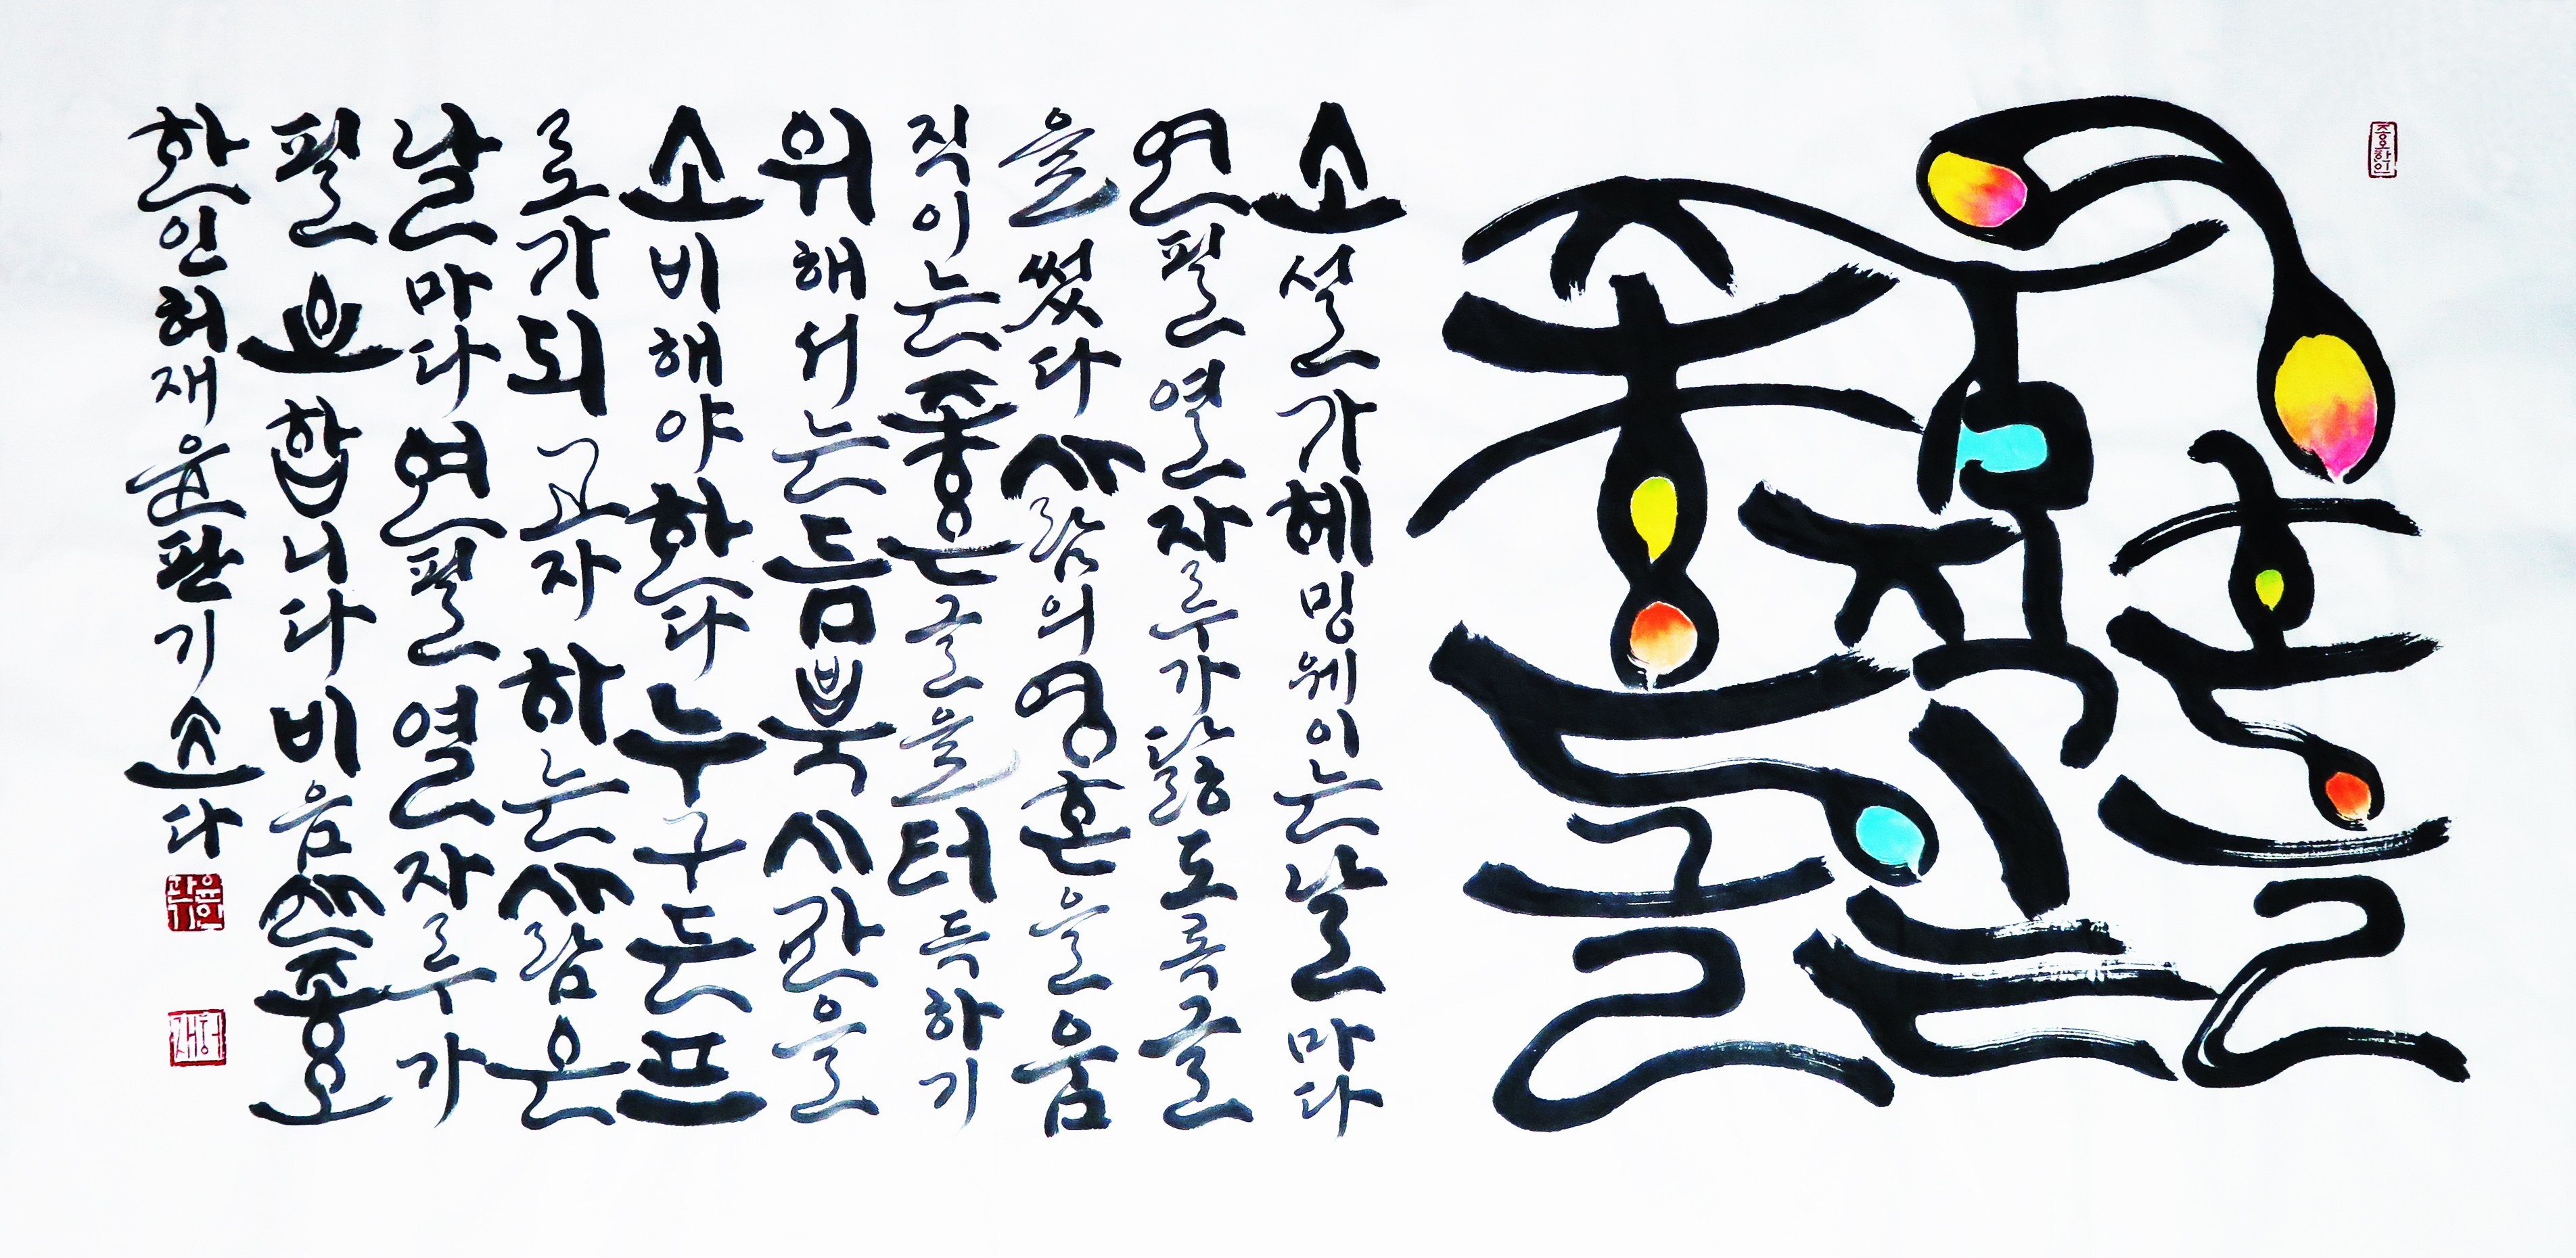 영혼을
움직이는
좋은글
소설가헤밍웨이는날마다
연필열자루가닳도록글
을썼다사람의영혼을움
직이는좋은글을터득하기
위해서는듬뿍시간을
소비해야한다누구든프
로가되고자하는사람은
날마다연필열자루가
필요합니다비움
허재윤판기쓰다